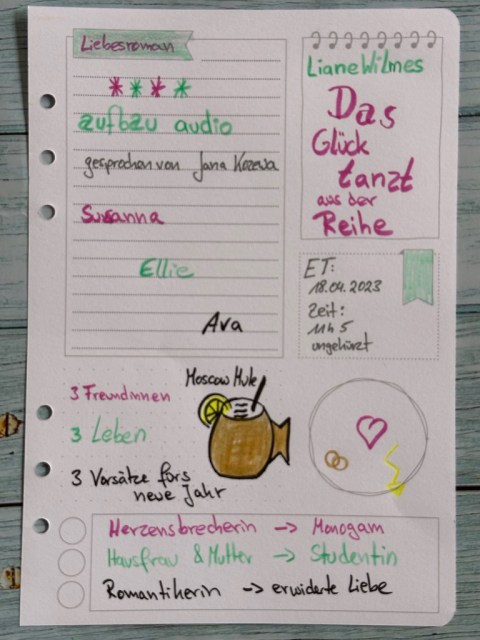 Liebesroman
* * * *
aufbau audio
gesprochen von Jana Kozewa
Susanna
Ellie
Ava
Liane Wilmes
Das
Glück
tanzt
aus der
Reihe
ET:
18.04.2023
Zeit:
11h 5
ungekürzt
3 Freundinnen
3 Leben
3 Vorsätze fürs
neue Jahr
Moscow Mule
Herzensbrecherin -> Monogam
Hausfrau & Mutter -> Studentin
Romantikerin -> erwiderte Liebe